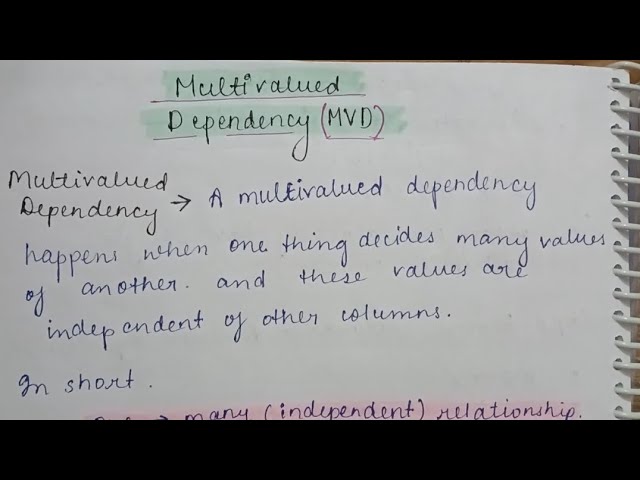 Multivalued
Dependency (MVD)
Multivalued
Dependency → A multivalued dependency
happens when one thing decides many values
of another. and these values are
independent of other columns.
In short.
→ many (independent) relationship.